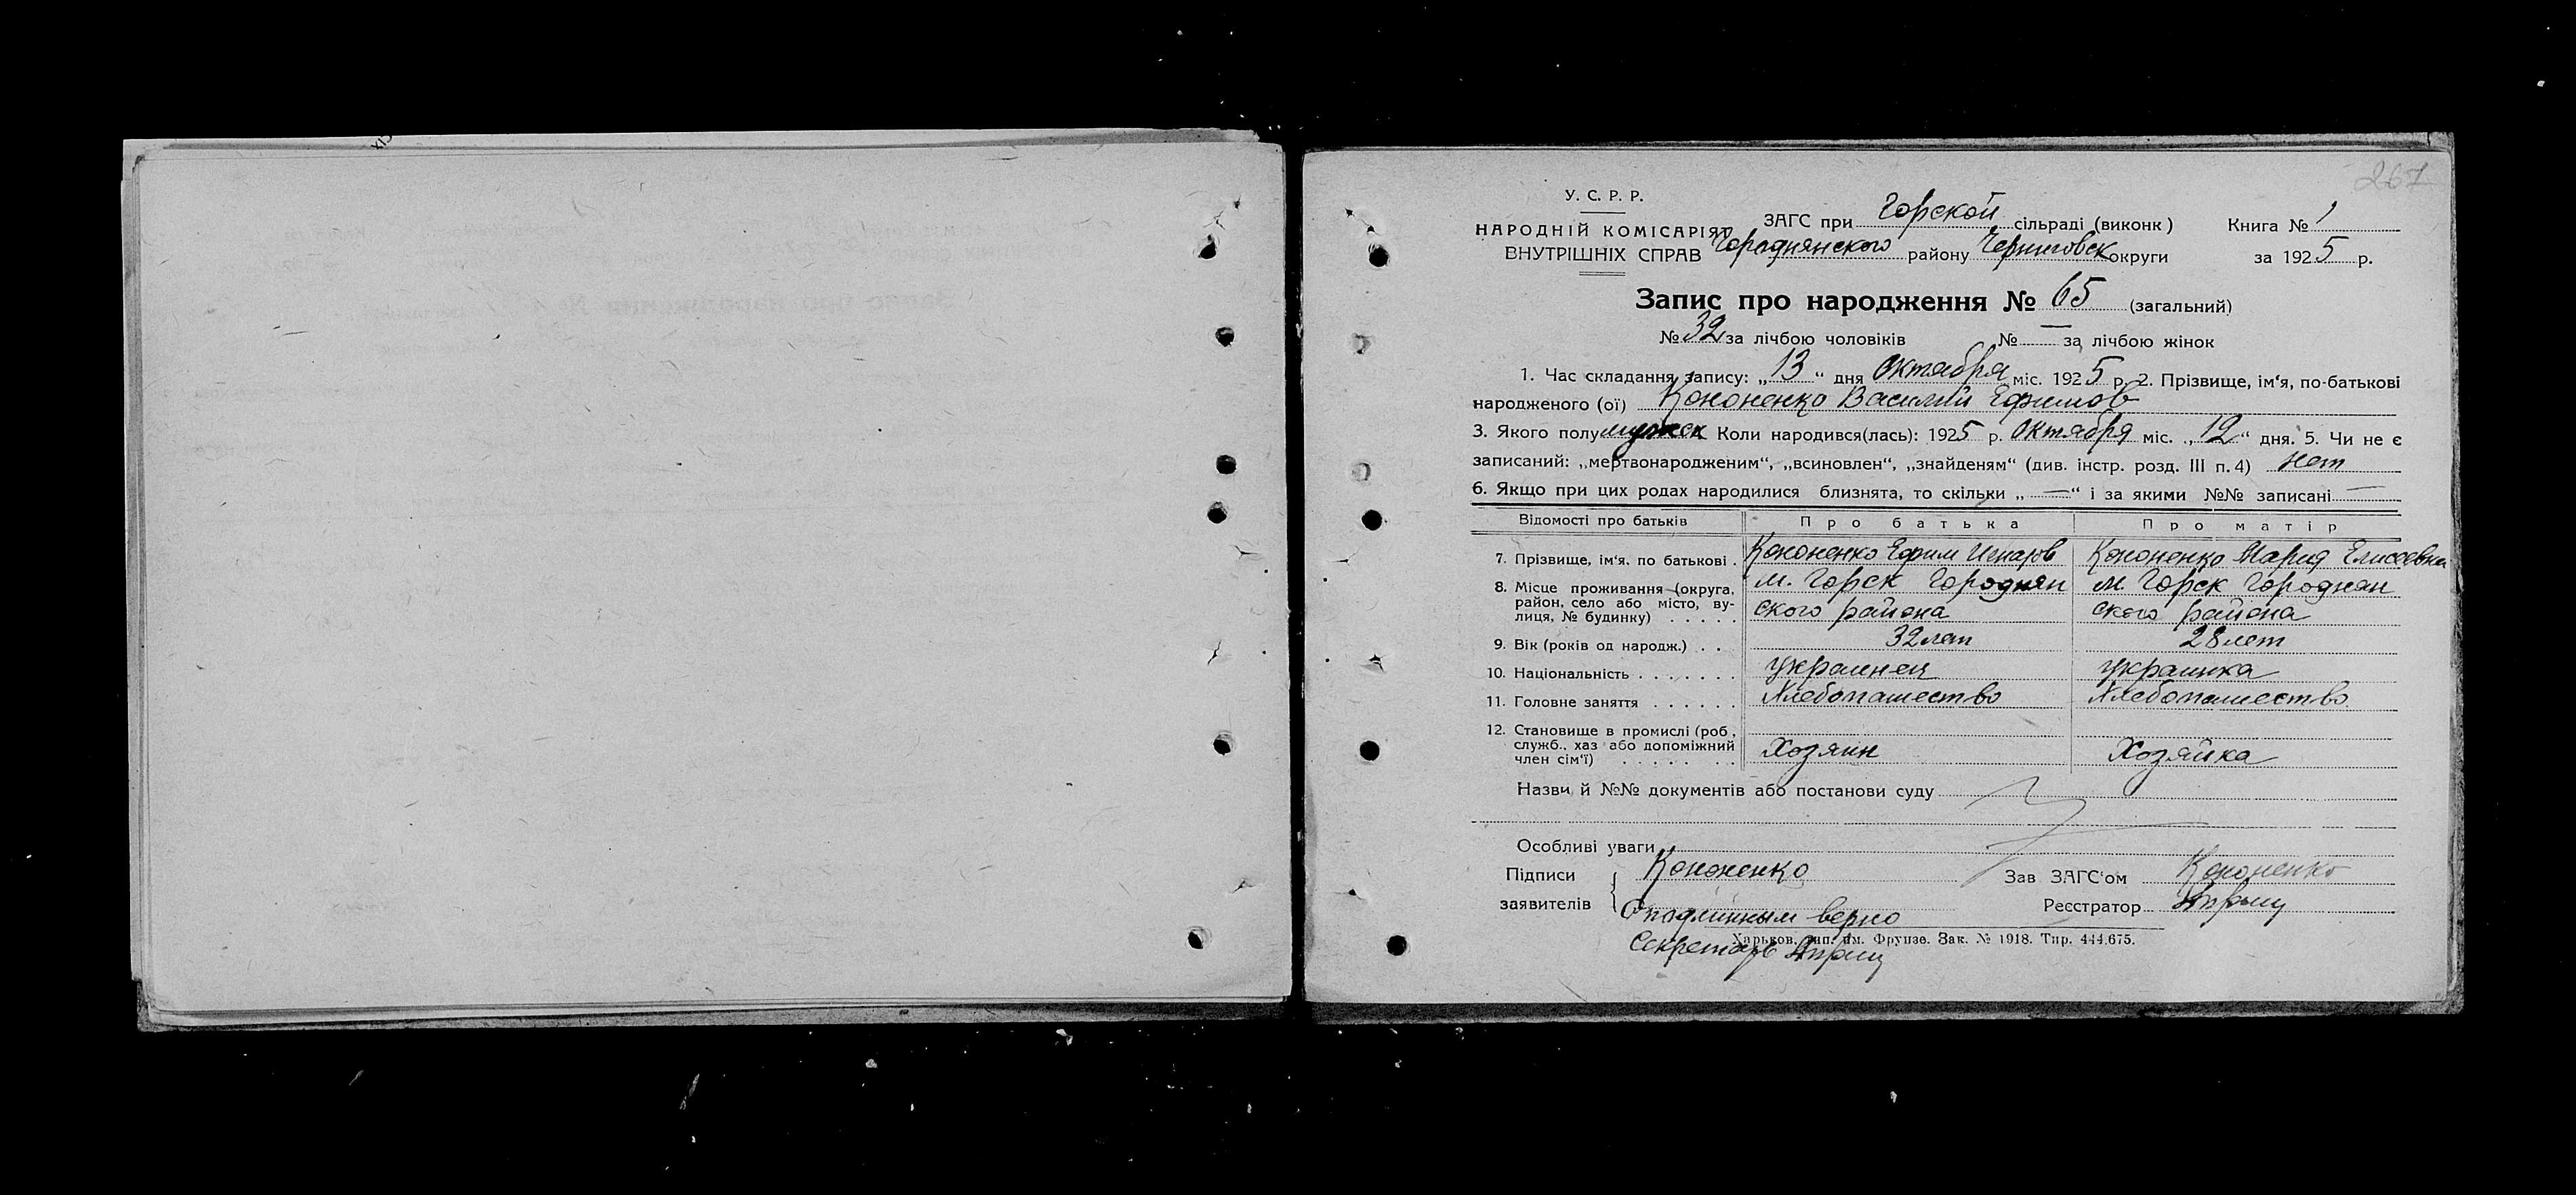 267
У. С. Р. Р.
НАРОДНІЙ КОМІСАРІЯТ
ВНУТРІШНІХ СПРАВ
ЗАГС при Горской сільраді (виконк)
Городнянского району Черниговск округи
Книга № 1
за 1925 р.
Запис про народження № 65 (загальний)
№ 32 за лічбою чоловіків № — за лічбою жінок
1. Час складання запису: „13“ дня Октября міс. 1925 р. 2. Прізвище, ім‘я, по-батькові
народженого (ої) Кононенко Василий Ефимов
3. Якого полу мужск Коли народився(лась): 1925 р. Октября міс. „12“ дня. 5. Чи не є
записаний: „мертвонародженим“, „всиновлен“, „знайденям“ (див. інстр. розд. III п. 4) нет
6. Якщо при цих родах народилися близнята, то скільки „ — “ і за якими №№ записані —
Відомості про батьків Про батька Про матір
7. Прізвище, ім‘я, по батькові . Кононенко Ефим Кононенко Мария Елисеевна
8. Місце проживання (округа, м. Горск Городнян м. Горск Городнян
район, село або місто, ву- ского района ского района
лиця, № будинку) . . . . .
9. Вік (років од народж.) . . 32 лет 28 лет
10. Національність . . . . . . . украинец украинка
11. Головне заняття . . . . . . Хлебопашество Хлебопашество
12. Становище в промислі (роб.,
служб., хаз або допоміжний Хозяин Хозяйка
член сім‘ї) . . . . . . .
Назви й №№ документів або постанови суду
Особливі уваги
Підписи Кононенко Зав ЗАГС‘ом Кононенко
заявителів Реєстратор
С подлинным верно
Харьков, тип. им. Фрунзе. Зак. № 1918. Тир. 444.675.
Секретарь